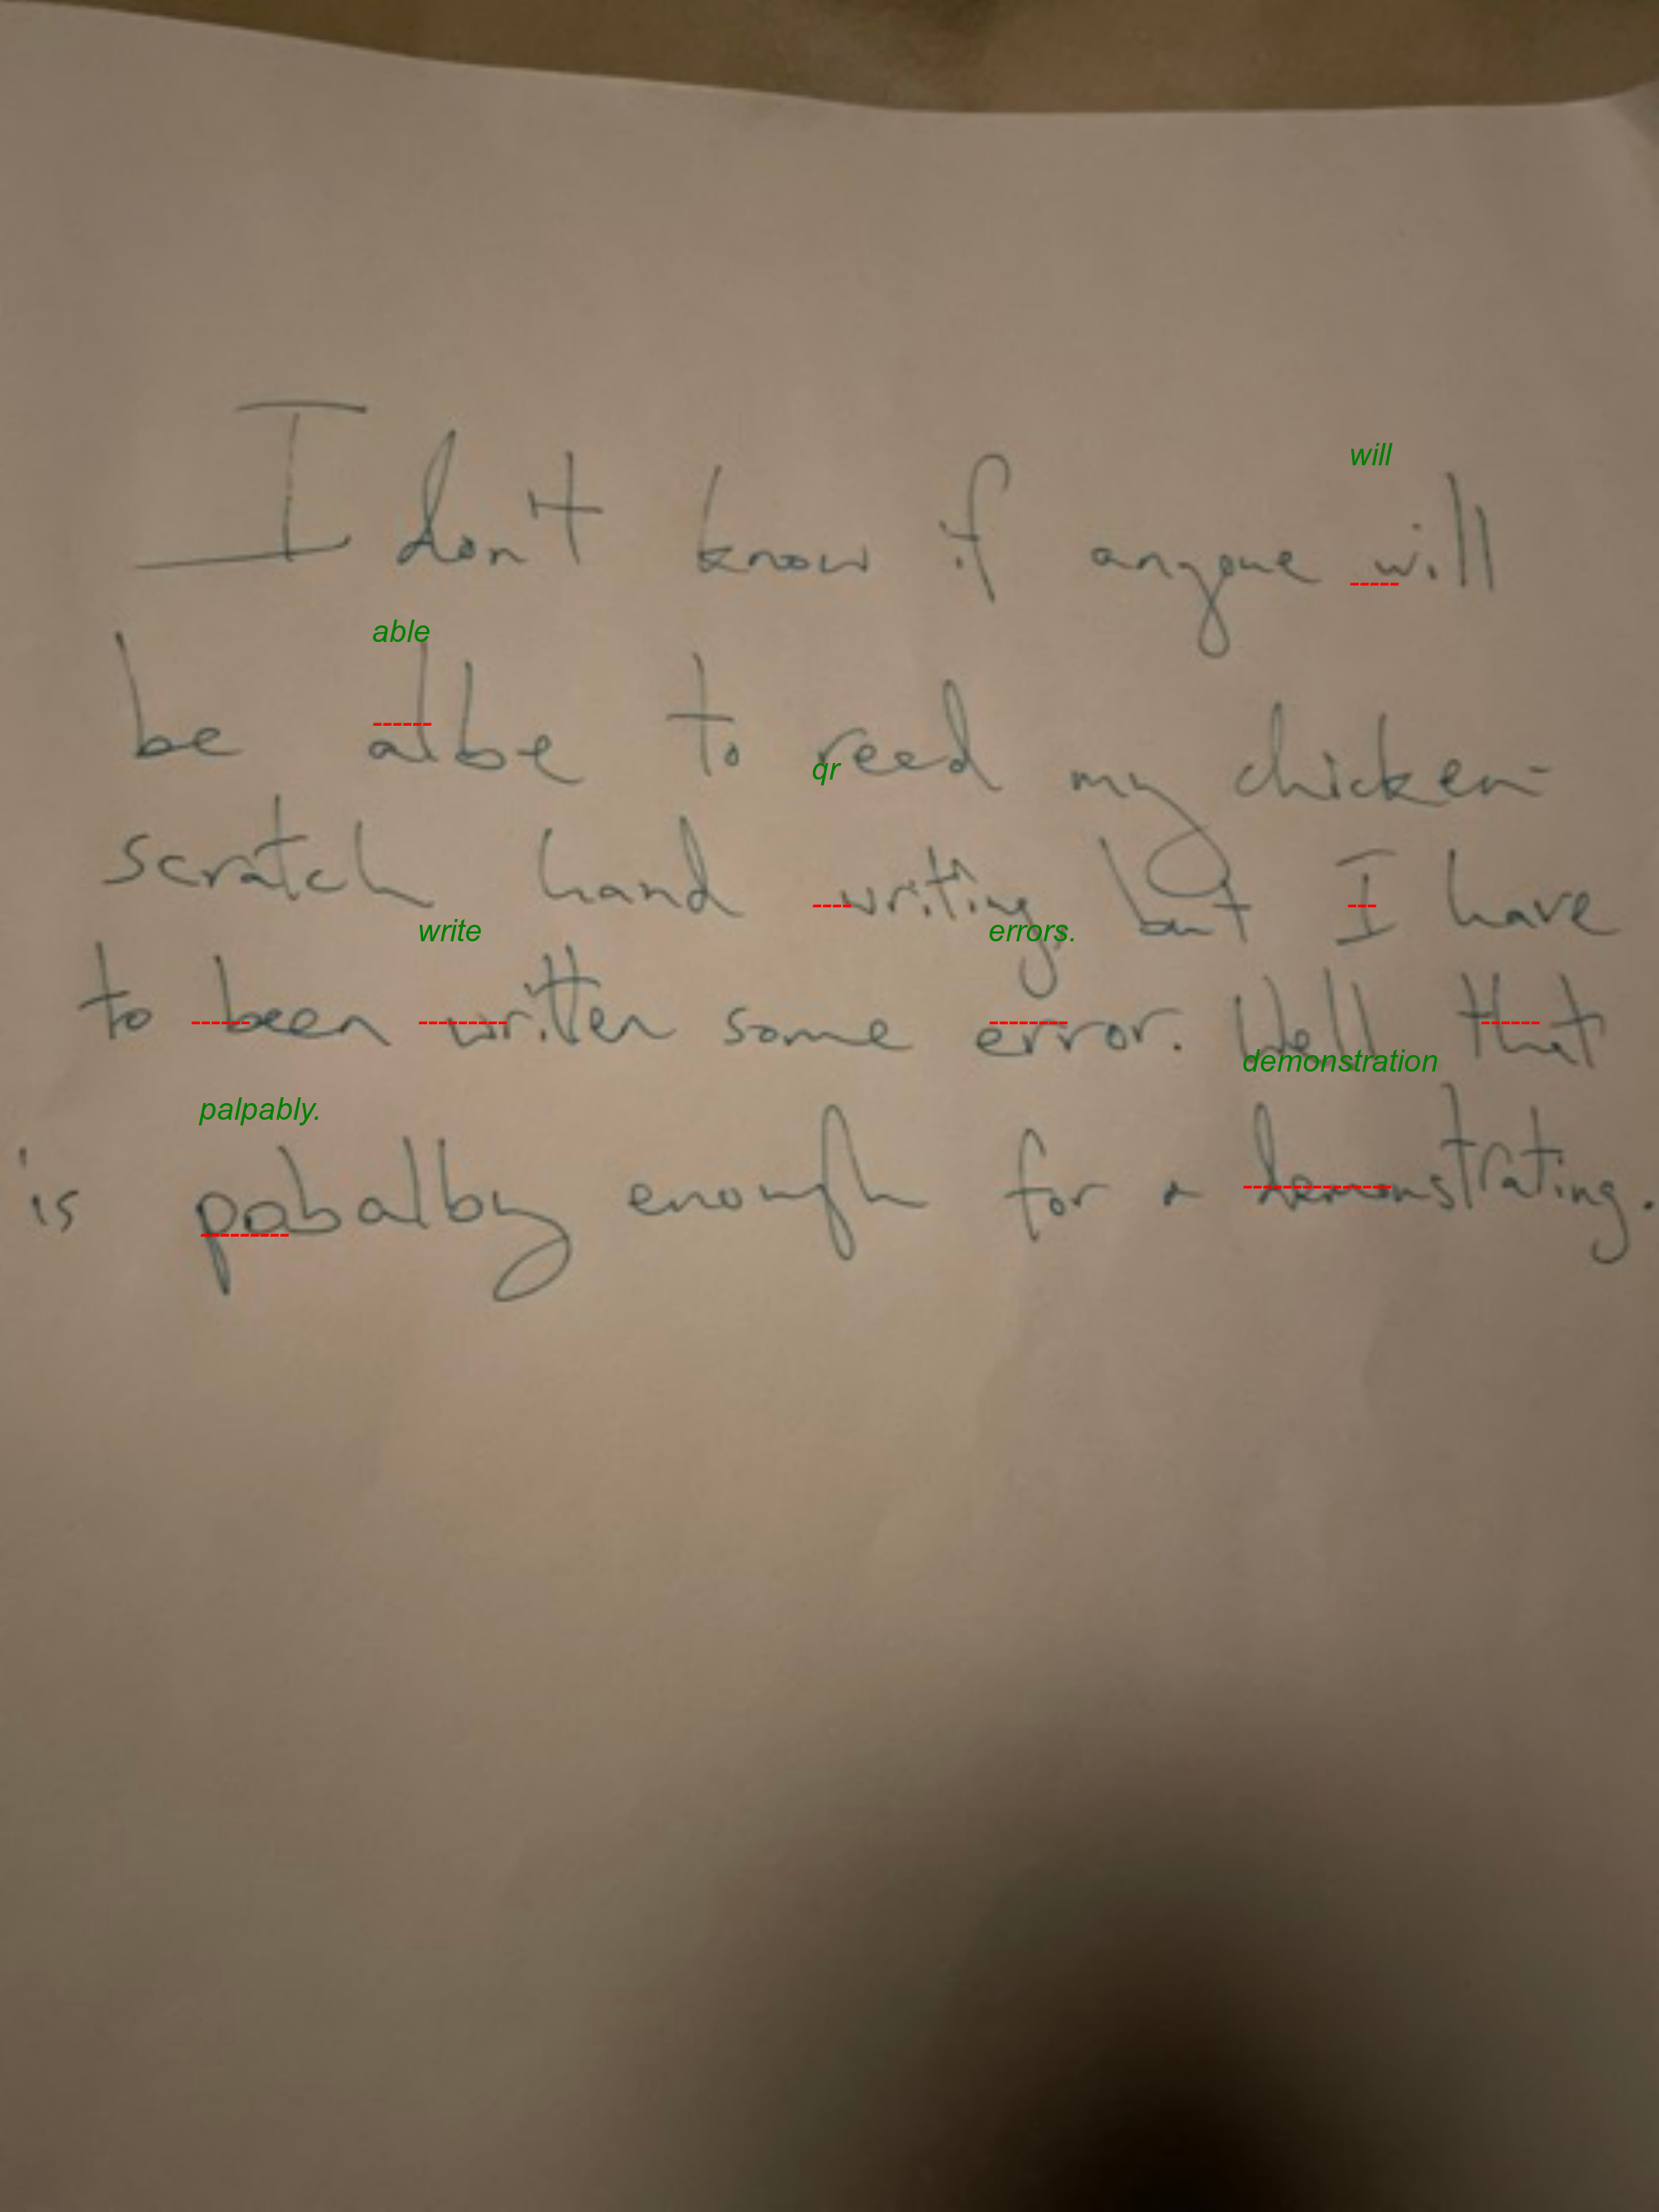 will
I don't know if anyone will
able
be albe to reed my chicken-
qr
scratch hand writing, but I have
write errors.
to been written some error. Well that
demonstration
palpably.
is pobalby enough for a demonstrating.